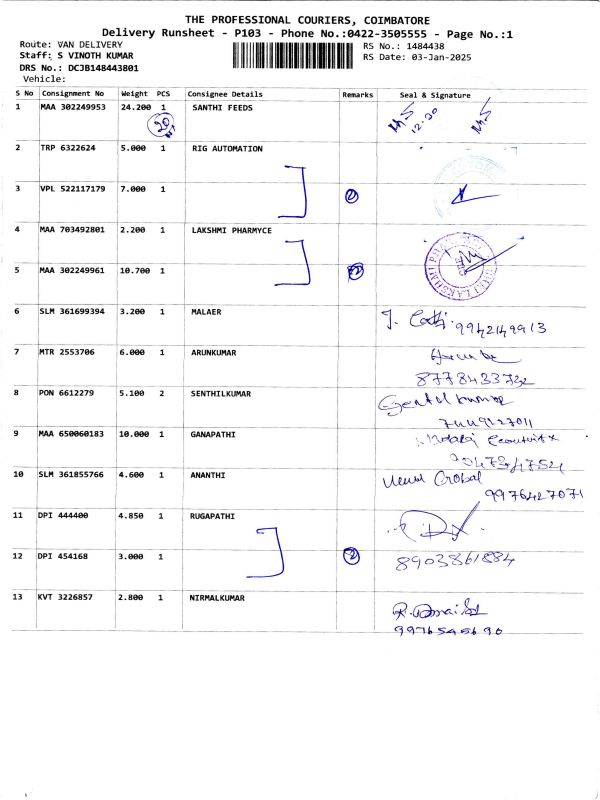 THE PROFESSIONAL COURIERS, COIMBATORE
Delivery Runsheet - P103 - Phone No.:0422-3505555 - Page No.:1
Route: VAN DELIVERY
RS No.: 1484438
Staff: S VINOTH KUMAR
RS Date: 03-Jan-2025
DRS No.: DCJB148443801
Vehicle:
S No Consignment No Weight PCS Consignee Details Remarks Seal & Signature
1 MAA 302249953 24.200 1 SANTHI FEEDS
20
12-30
2 TRP 6322624 5.000 1 RIG AUTOMATION
3 VPL 522117179 7.000 1 2
4 MAA 703492801 2.200 1 LAKSHMI PHARMYCE
5 MAA 302249961 10.700 1 2
6 SLM 361699394 3.200 1 MALAER
9942149913
7 MTR 2553706 6.000 1 ARUNKUMAR
8778433732
8 PON 6612279 5.100 2 SENTHILKUMAR
Sentil kumar
9 MAA 650060183 10.000 1 GANAPATHI
10 SLM 361855766 4.600 1 ANANTHI
9976427071
11 DPI 444400 4.850 1 RUGAPATHI
12 DPI 454168 3.000 1 2 8903861884
13 KVT 3226857 2.800 1 NIRMALKUMAR
9976545690